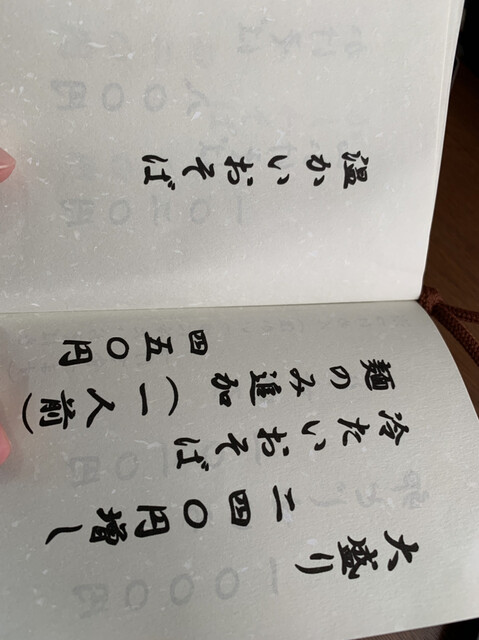 大盛り
二四〇円増し
冷たいおそば
麺のみ追加(一人前)
四五〇円
温かいおそば